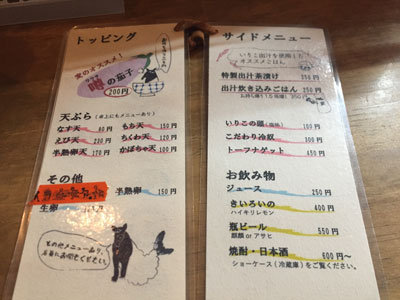 トッピング
夏のオススメ！
噂の茄子
200円
天ぷら（卓上にもメニューあり）
なす天 80円
もち天 150円
えび天 230円
ちくわ天 120円
半熟卵天 170円
かぼちゃ天 100円
その他
半熟卵 150円
生卵
その他メニューあり。
サイドメニュー
いりこ出汁を使用した
オススメごはん
特製出汁茶漬け 350円
出汁炊き込みごはん 250円
いりこの頭 100円
こだわり冷奴 300円
トーフナゲット 450円
お飲み物
ジュース 250円
きいろいの 400円
ハイキリレモン
瓶ビール 550円
麒麟 or アサヒ
焼酎・日本酒 600円〜
ショーケース（冷蔵庫）をご覧ください。